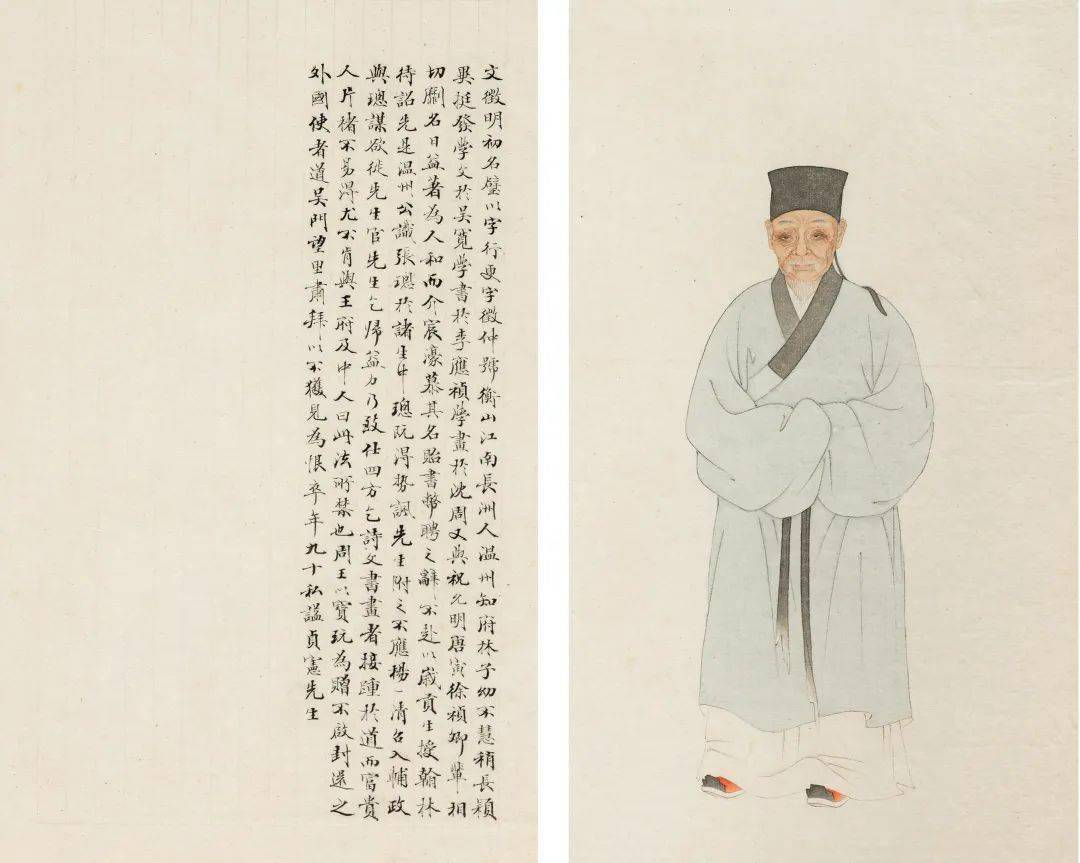 文徵明初名璧以字行更字徵仲號衡山江南長洲人溫州知府林子幼不慧稍長穎
異挺發學文於吳寬學書於李應禎學畫於沈周又與祝允明唐寅徐禎卿輩相
切劘名日益著為人和而介宸濠慕其名貽書幣聘之辭不赴以歲貢生授翰林
待詔先是溫州公識張璁於諸生中璁既得勢諷先生附之不應楊一清召入輔政
與璁謀欲徙先生官先生乞歸益力乃致仕四方乞詩文書畫者接踵於道而富貴
人片楮不易得尤不肯與王府及中人曰此法所禁也周王以寶玩為贈不啟封還之
外國使者道吳門望里肅拜以不獲見為恨卒年九十私諡貞憲先生